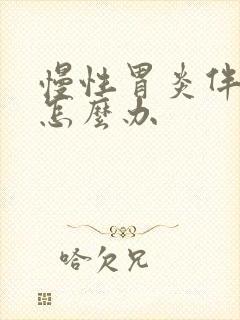 慢性胃炎伴
怎麼办
哈欠兄